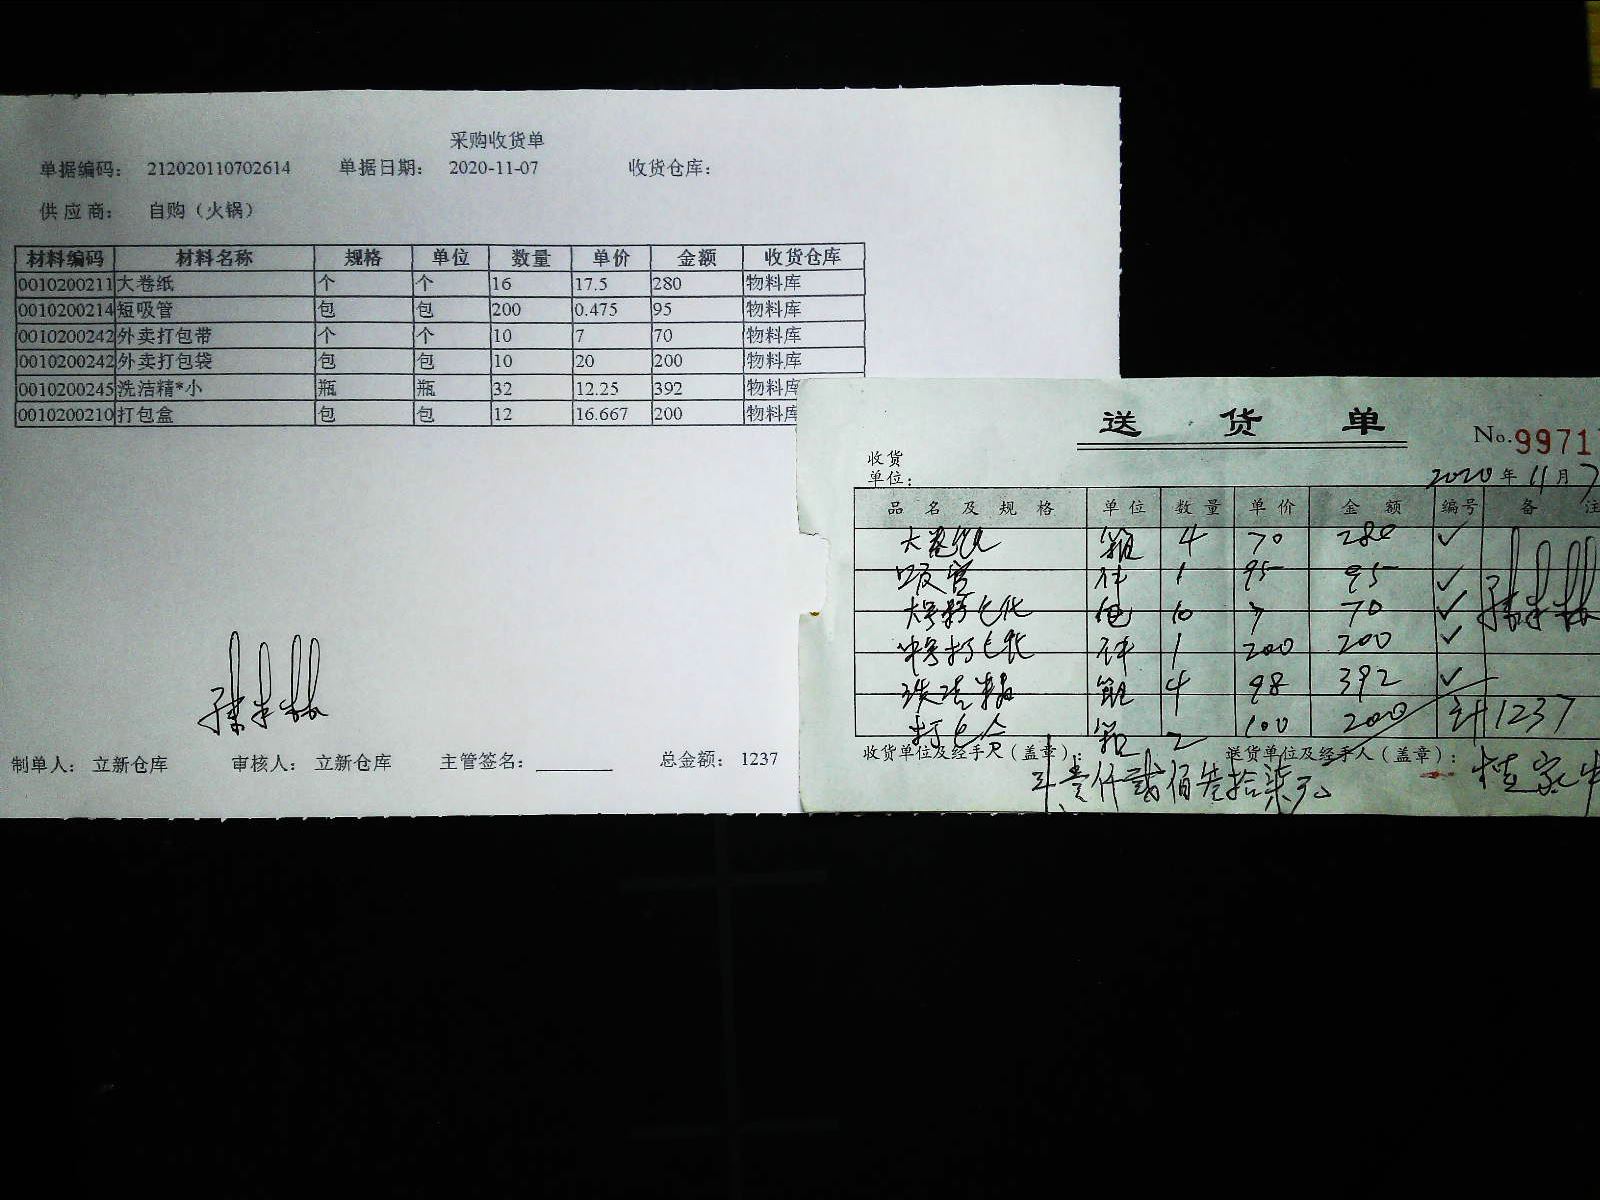 采购收货单
单据编码： 212020110702614 单据日期： 2020-11-07 收货仓库：
供应商： 自购（火锅）
材料编码 材料名称 规格 单位 数量 单价 金额 收货仓库
0010200211 大卷纸 个 个 16 17.5 280 物料库
0010200214 短吸管 包 包 200 0.475 95 物料库
0010200242 外卖打包带 个 个 10 7 70 物料库
0010200242 外卖打包袋 包 包 10 20 200 物料库
0010200245 洗洁精*小 瓶 瓶 32 12.25 392 物料库
0010200210 打包盒 包 包 12 16.667 200 物料库
制单人： 立新仓库 审核人： 立新仓库 主管签名： 总金额： 1237
送货单
No.9971
收货
单位：
2020年11月7
品名及规格 单位 数量 单价 金额 编号 备注
大卷纸 箱 4 70 280
吸管 件 1 95 95
大号 包 10 7 70
打包 件 1 200 200
洗洁精 箱 4 98 392
打包合 箱 2 100 200 计1237
收货单位及经手人（盖章）： 送货单位及经手人（盖章）：
壹仟贰佰叁拾柒元